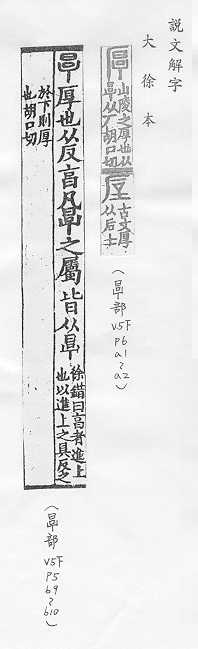 説文解字
大徐本
厚 山陵之厚也从
㫗从厂胡口切
垕 古文厚
从后土
(㫗部 V5下 P6 a1~a2)
㫗 厚也从反亯凡㫗之屬皆从㫗 徐鍇曰亯者進上
也以進上之具反之
於下則厚
也胡口切
(㫗部 V5下 P5 b9~b10)